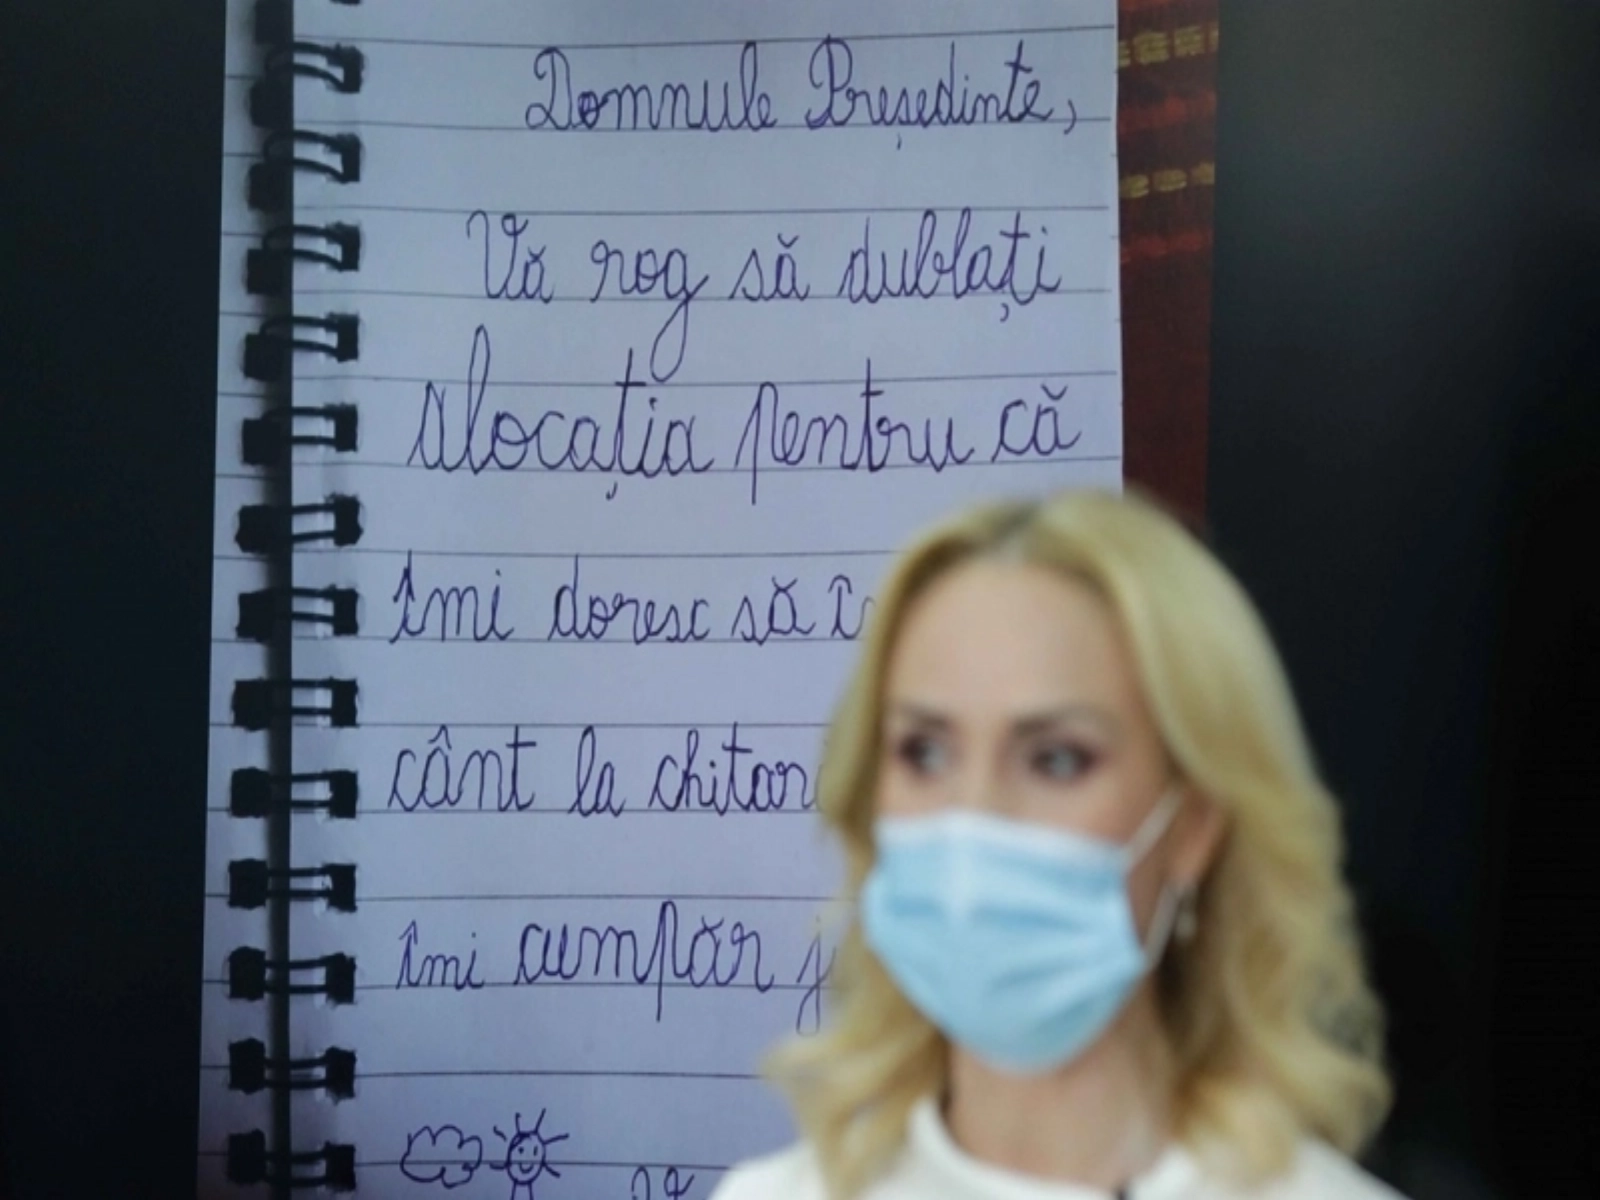 Domnule Președinte,
Vă rog să dublați
alocația pentru că
îmi doresc să
cânt la
îmi cumpăr